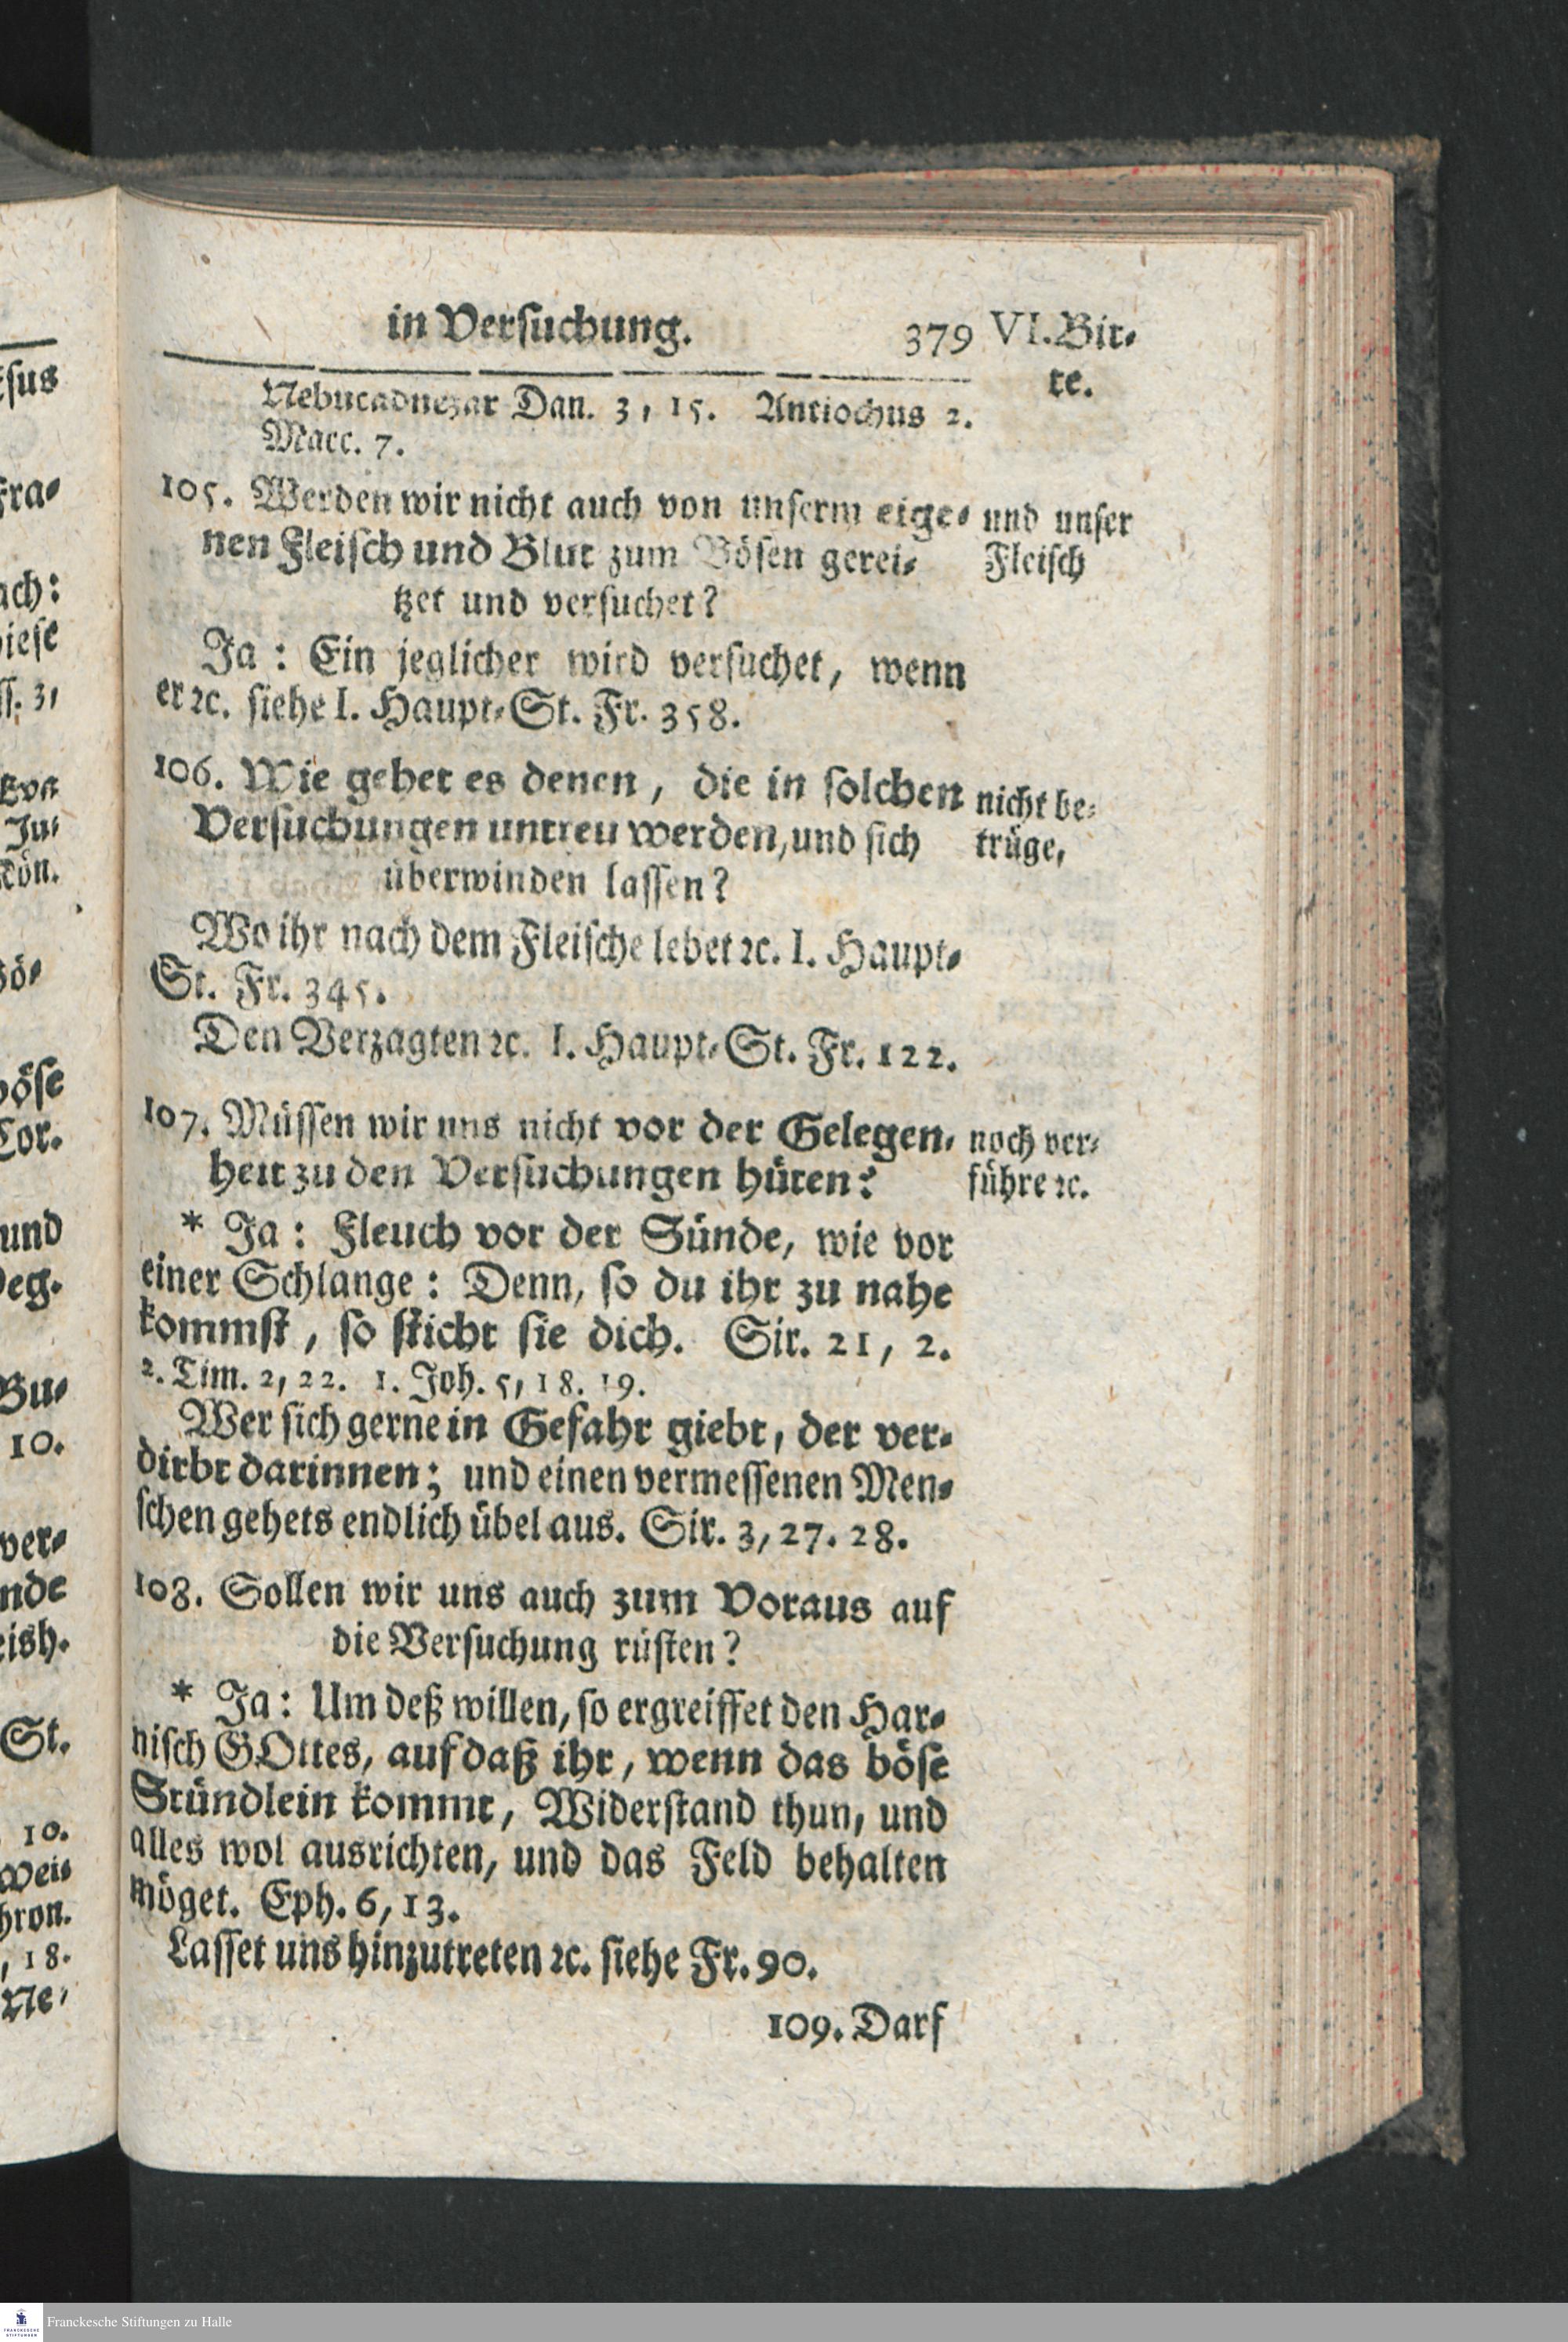 in Versuchung.
379 VI. Bit-
te.
Nebucadnezar Dan. 3, 15. Antiochus 2.
Macc. 7.
105. Werden wir nicht auch von unserm eige-
nen Fleisch und Blut zum Bösen gerei-
tzet und versuchet?
und unser
Fleisch
Ja: Ein jeglicher wird versuchet, wenn
er ꝛc. siehe I. Haupt-St. Fr. 358.
106. Wie gehet es denen, die in solchen
Versuchungen untreu werden, und sich
überwinden lassen?
nicht be-
trüge,
Wo ihr nach dem Fleische lebet ꝛc. I. Haupt-
St. Fr. 345.
Den Verzagten ꝛc. I. Haupt-St. Fr. 122.
107. Müssen wir uns nicht vor der Gelegen-
heit zu den Versuchungen hüten?
noch ver-
führe ꝛc.
* Ja: Fleuch vor der Sünde, wie vor
einer Schlange: Denn, so du ihr zu nahe
kommst, so sticht sie dich. Sir. 21, 2.
2. Tim. 2, 22. 1. Joh. 5, 18. 19.
Wer sich gerne in Gefahr giebt, der ver-
dirbt darinnen; und einen vermessenen Men-
schen gehets endlich übel aus. Sir. 3, 27. 28.
108. Sollen wir uns auch zum Voraus auf
die Versuchung rüsten?
* Ja: Um deß willen, so ergreiffet den Har-
nisch GOttes, auf daß ihr, wenn das böse
Stündlein kommt, Widerstand thun, und
alles wol ausrichten, und das Feld behalten
möget. Eph. 6, 13.
Lasset uns hinzutreten ꝛc. siehe Fr. 90.
109. Darf
Franckesche Stiftungen zu Halle